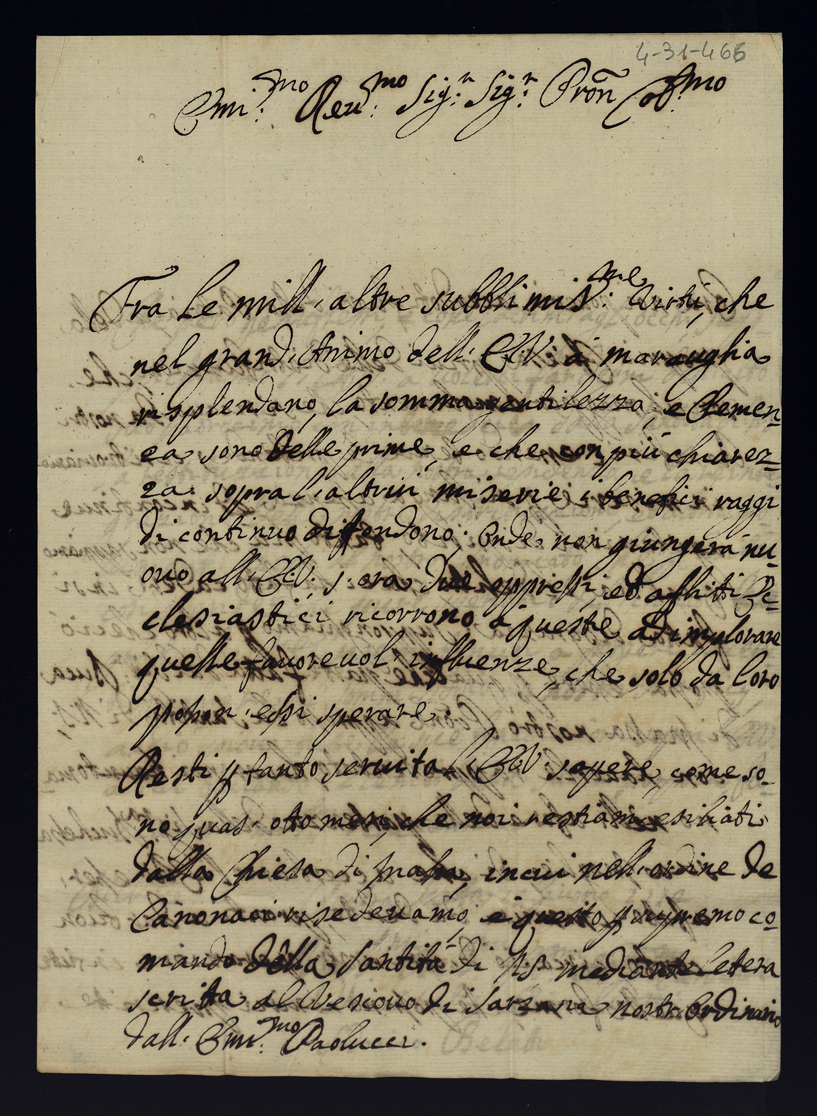 4-31-466
Emi:mo Reu:mo Sig:r Sig:r Pron Ob:mo
Fra le mill'altre subblimiss:me Virtù, che
nel grand'Animo dell'EV: à marauiglia
risplendano, la somma gentilezza, e Clemen=
za sono delle prime, e che con più chiarez=
za sopra l'altrui miserie i benefici raggi
di continuo diffendono; onde non giungerà nu=
ouo all'EV: s'ora due oppressi, ed afliti Ec=
clesiastici ricorrono à queste ad implorare
quelle fauoreuol'influenze, che solo da loro
possan'essi sperare.
Resti p tanto seruita l'EV sapere, come so=
no quas'otto mesi, che noi restiam'esiliati
dalla Chiesa di Massa, in cui nell'ordine de
Canonaci risedeuamo, e questo p supremo co=
mando della Santità di NS mediante letera
scritta al Vescouo di Sarzana nostr'Ordinario
dall'Emi:mo Paolucci.